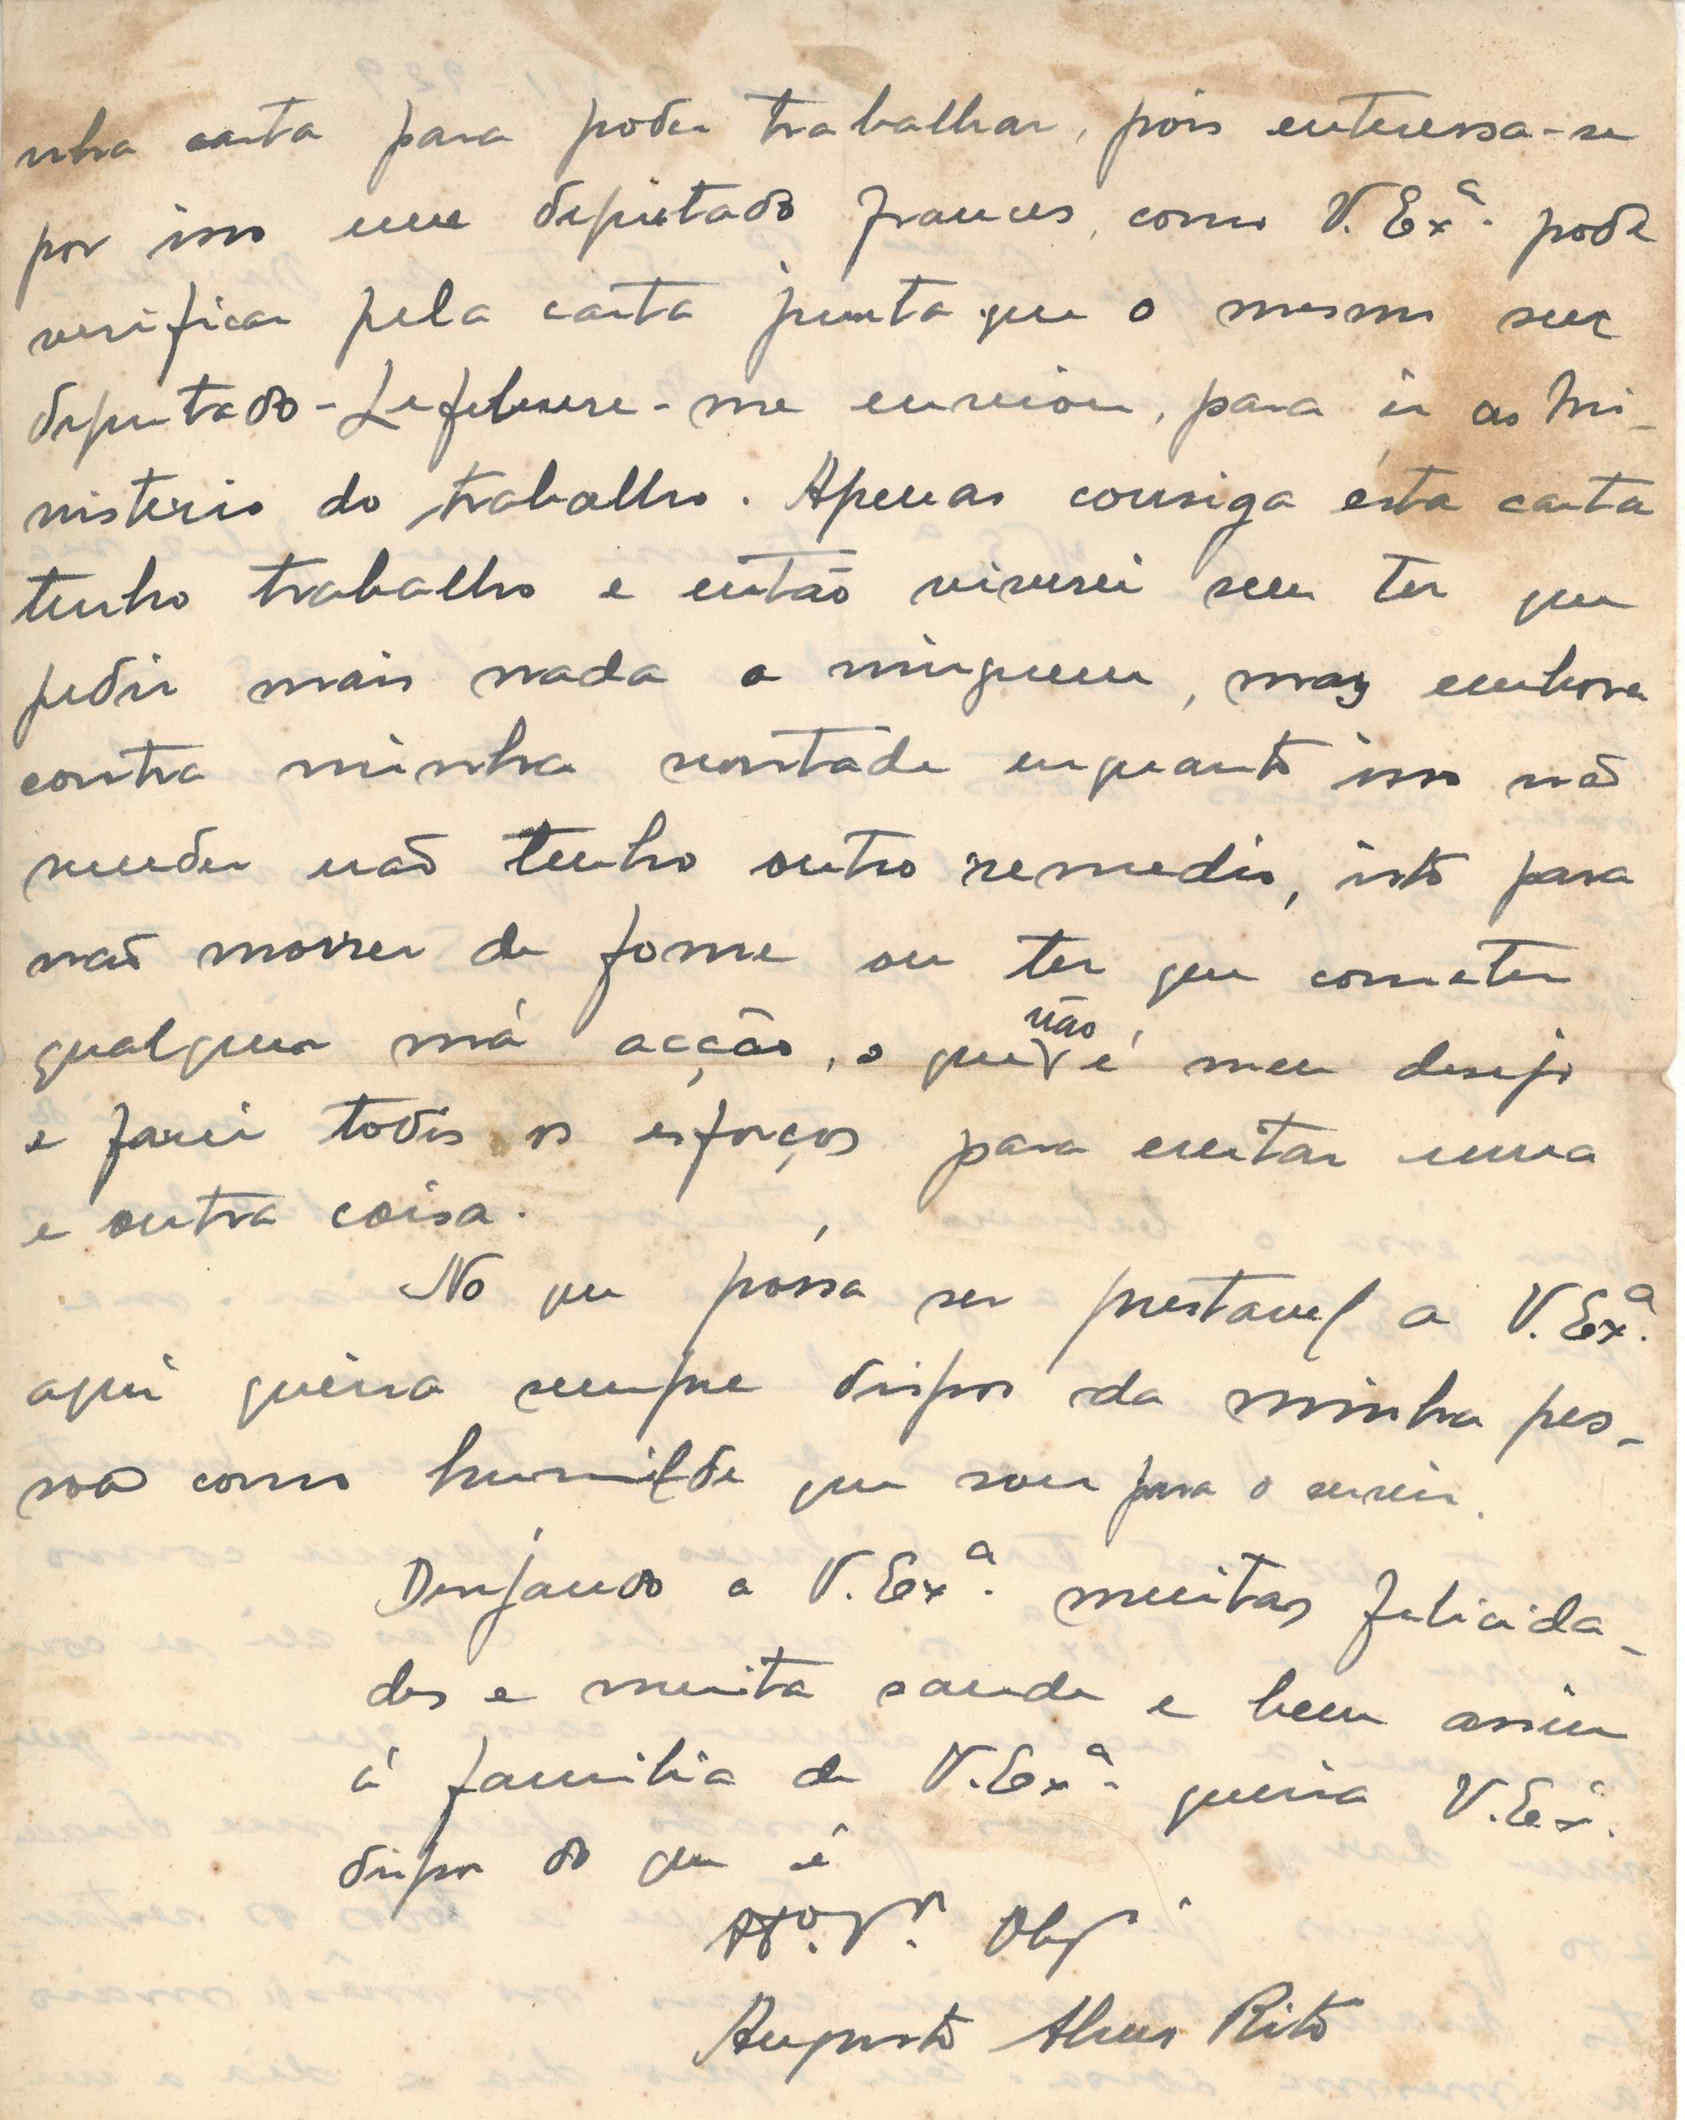 nha carta para poder trabalhar, pois enteressa-se
por isso um deputado frances, como V. Exª. pode
verificar pela carta junta que o mesmo snr
deputado - Lefebvre - me enviou, para ir ao Mi-
nisterio do trabalho. Apenas consiga ésta carta
tenho trabalho e então viverei sem ter que
pedir mais nada a ninguem, mas embora
contra minha vontade enquanto isso não
suceder não tenho outro remedio, isto para
não morrer de fome ou ter que cometer
qualquer má acção, o que não é meu desejo
e farei todos os esforços para evitar uma
e outra coisa.
No que póssa ser prestavel a V. Exª.
aqui queira sempre dispor da minha pes-
soa como humilde que sou para o servir.
Desejando a V. Exª. muitas felicida-
des e muita saude e bem assim
á familia de V. Exª. queira V. Exª.
dispor do que é
Attº. Vr. Obgº
Augusto Alves Rito